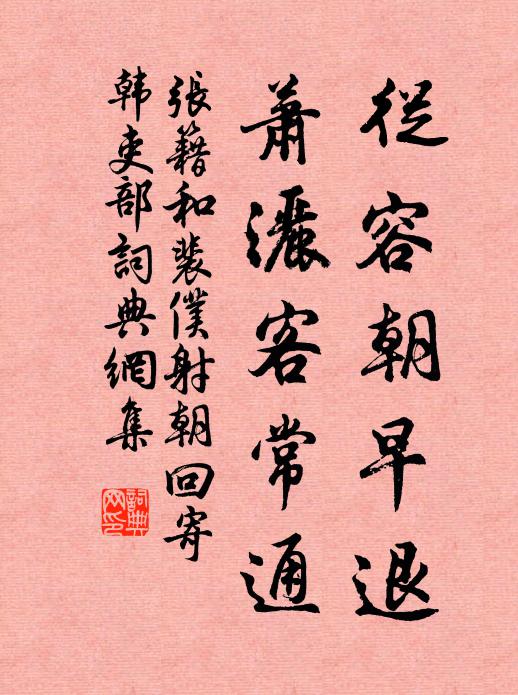 從容朝早退
蕭灑客常通
張籍和裴僕射朝回寄
韩吏部詞典網集
詞典网印